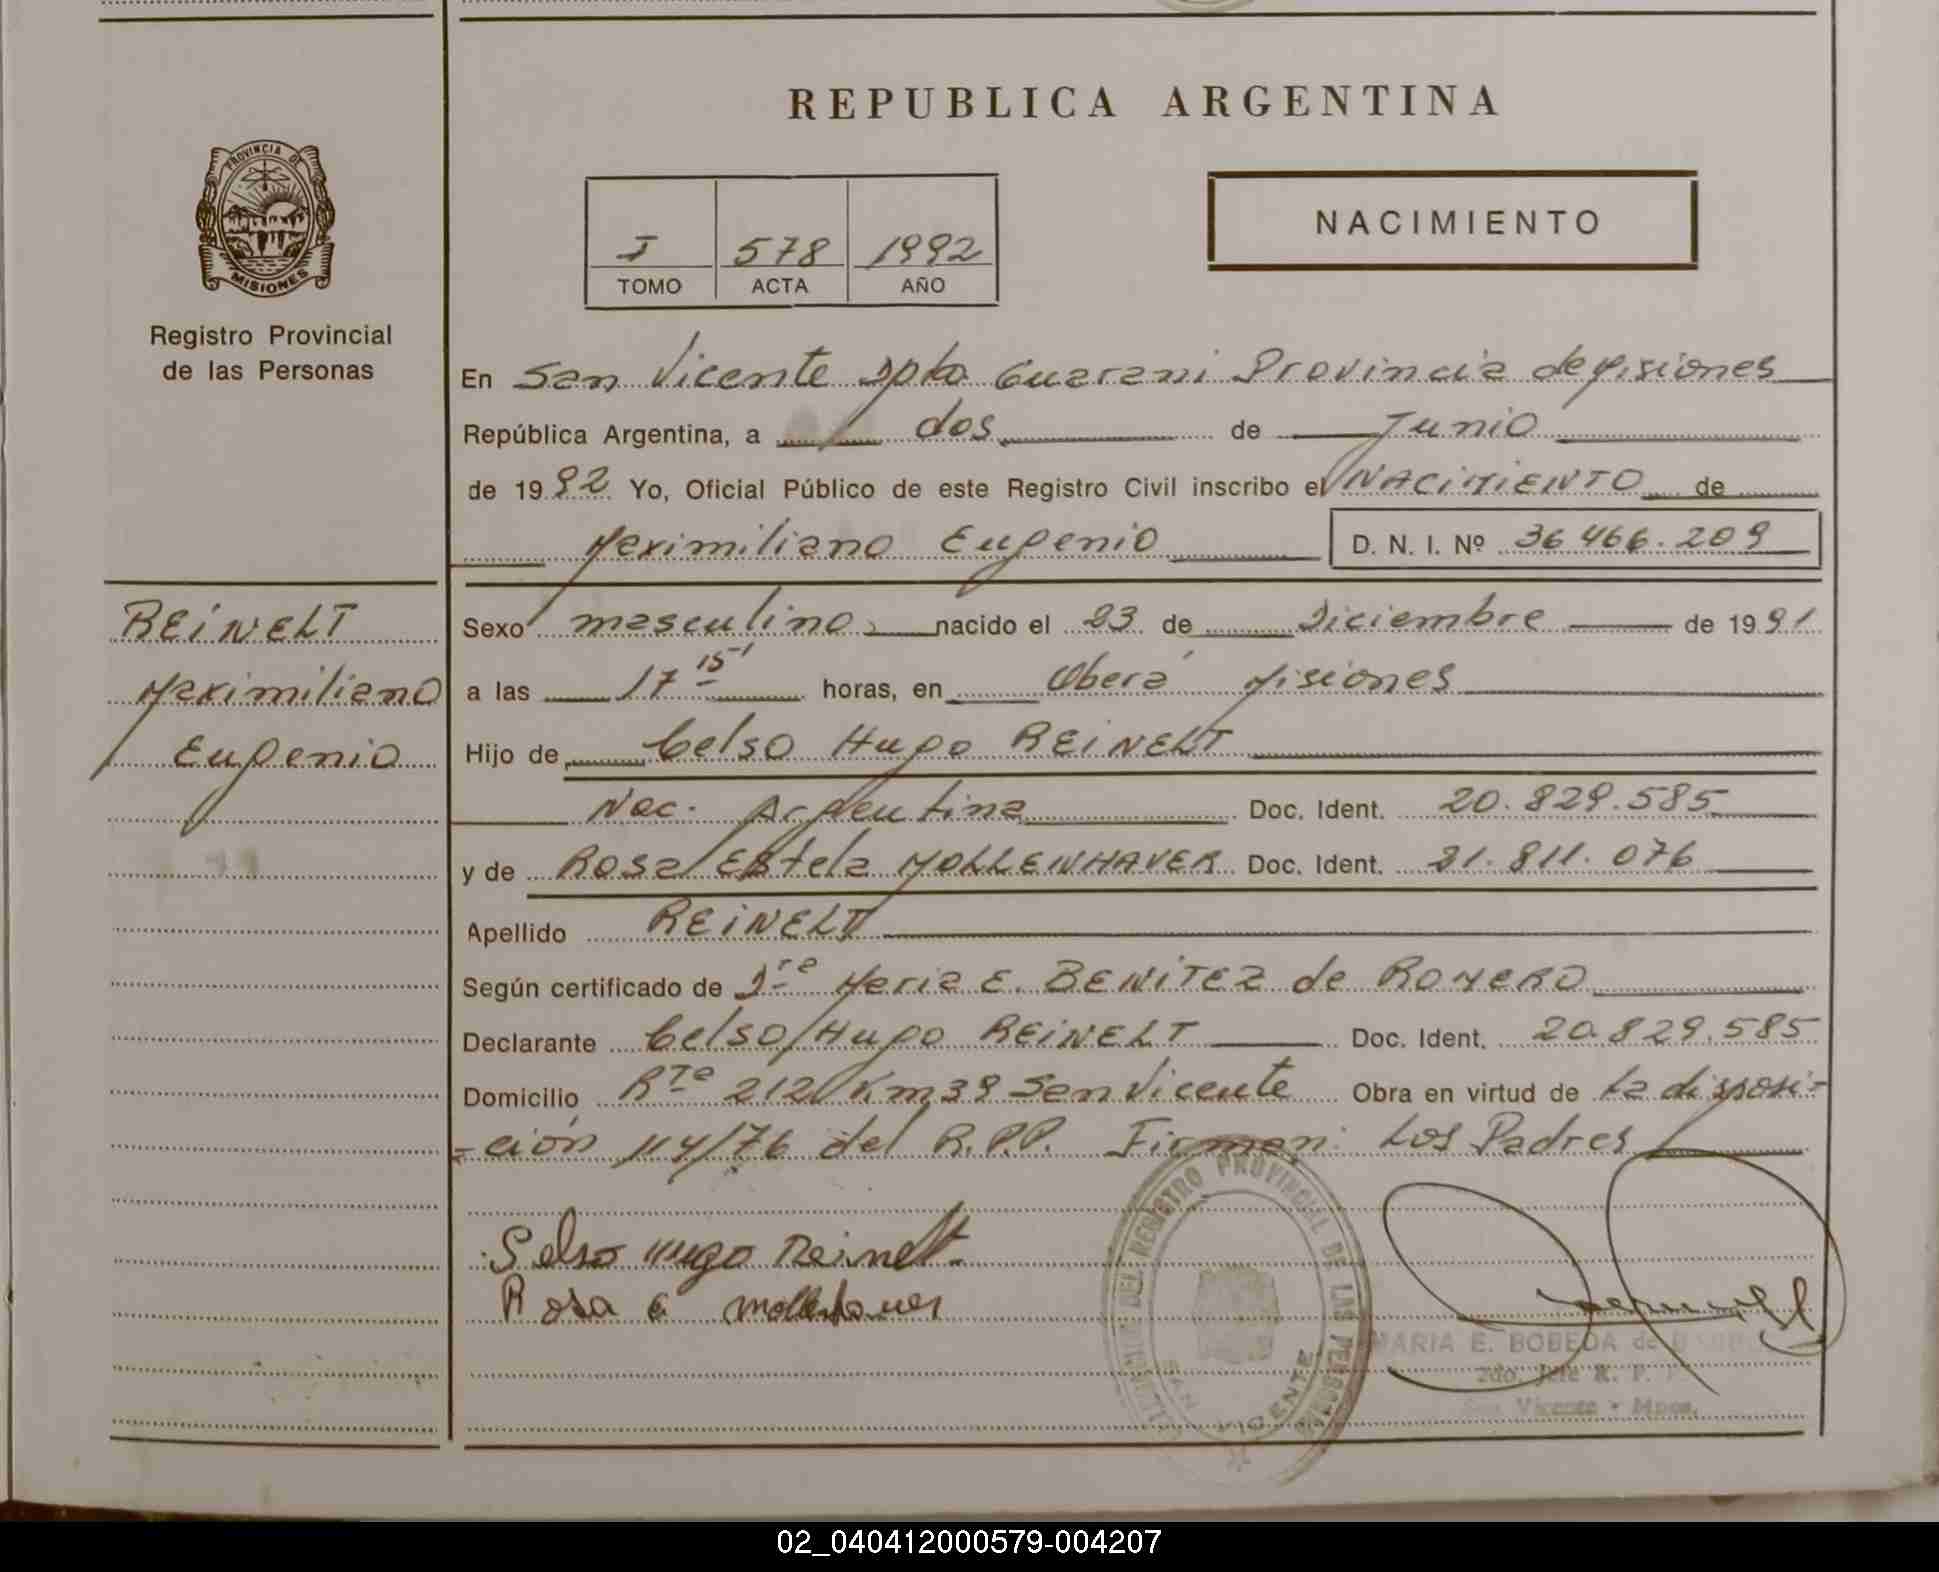 REPUBLICA ARGENTINA
PROVINCIA DE
MISIONES
Registro Provincial
de las Personas
NACIMIENTO
I 578 1992
TOMO ACTA AÑO
En San Vicente Dpto Guarani Provincia de Misiones
República Argentina, a dos de Junio
de 1992 Yo, Oficial Público de este Registro Civil inscribo el NACIMIENTO de
Maximiliano Eugenio D. N. I. Nº 36 466.209
REINELT
Maximiliano
Eugenio
Sexo masculino nacido el 23 de Diciembre de 1991
a las 17 15' horas, en Oberá Misiones
Hijo de Celso Hugo REINELT
Nac. Argentina Doc. Ident. 20.829.585
y de Rosa Estela MOLLENHAVER Doc. Ident. 21.811.076
Apellido REINELT
Según certificado de Dra Maria E. BENITEZ de ROMERO
Declarante Celso Hugo REINELT Doc. Ident. 20.829.585
Domicilio Rta 212 Km 39 San Vicente Obra en virtud de La disposi-
-ción 114/76 del R.P.P. Firman: Los Padres
Selso Hugo Reinelt
Rosa E mollenhauer
DEL REGISTRO PROVINCIAL DE LAS PERSONAS
SAN VICENTE
MARIA E. BOBEDA de
2do. Jefe R. P. P
San Vicente - Mnes.
02_040412000579-004207